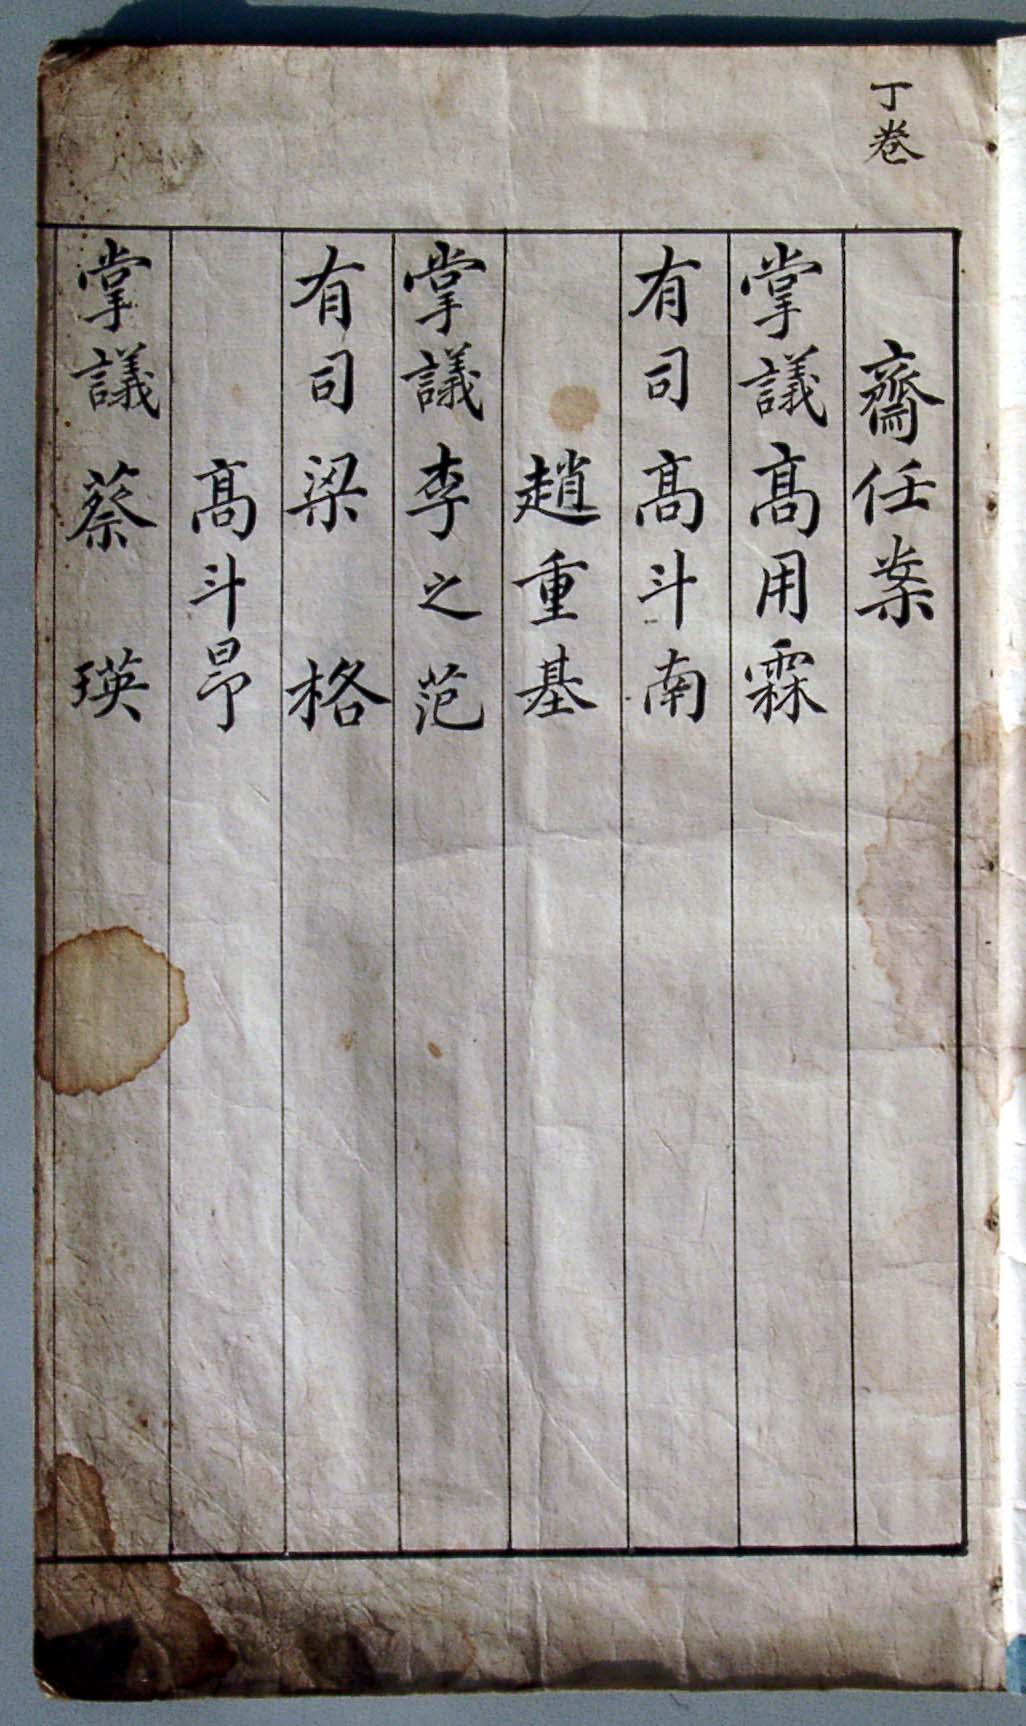 丁卷
齋任案
掌議 髙用霖
有司 髙斗南
趙重基
掌議 李之范
有司 梁格
髙斗昂
掌議 蔡瑛